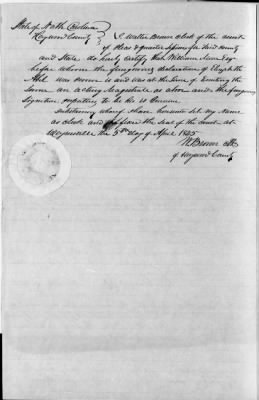 State of North Carolina
Haywood County } I Walter Brown Clerk of the Court
of Pleas & quarter Sessions for said County
and State do hereby Certify that William
before whom the foregoing declaration of Elizabeth
was sworn is and was at the time of
same an acting Magistrate as above and the foregoing
Signature purporting to be his is Genuine
Intestimony whereof I have hereunto set my Name
as Clerk and the seal of the court at
Waynesville the day of April 1855
W Brown Clk
of Haywood County